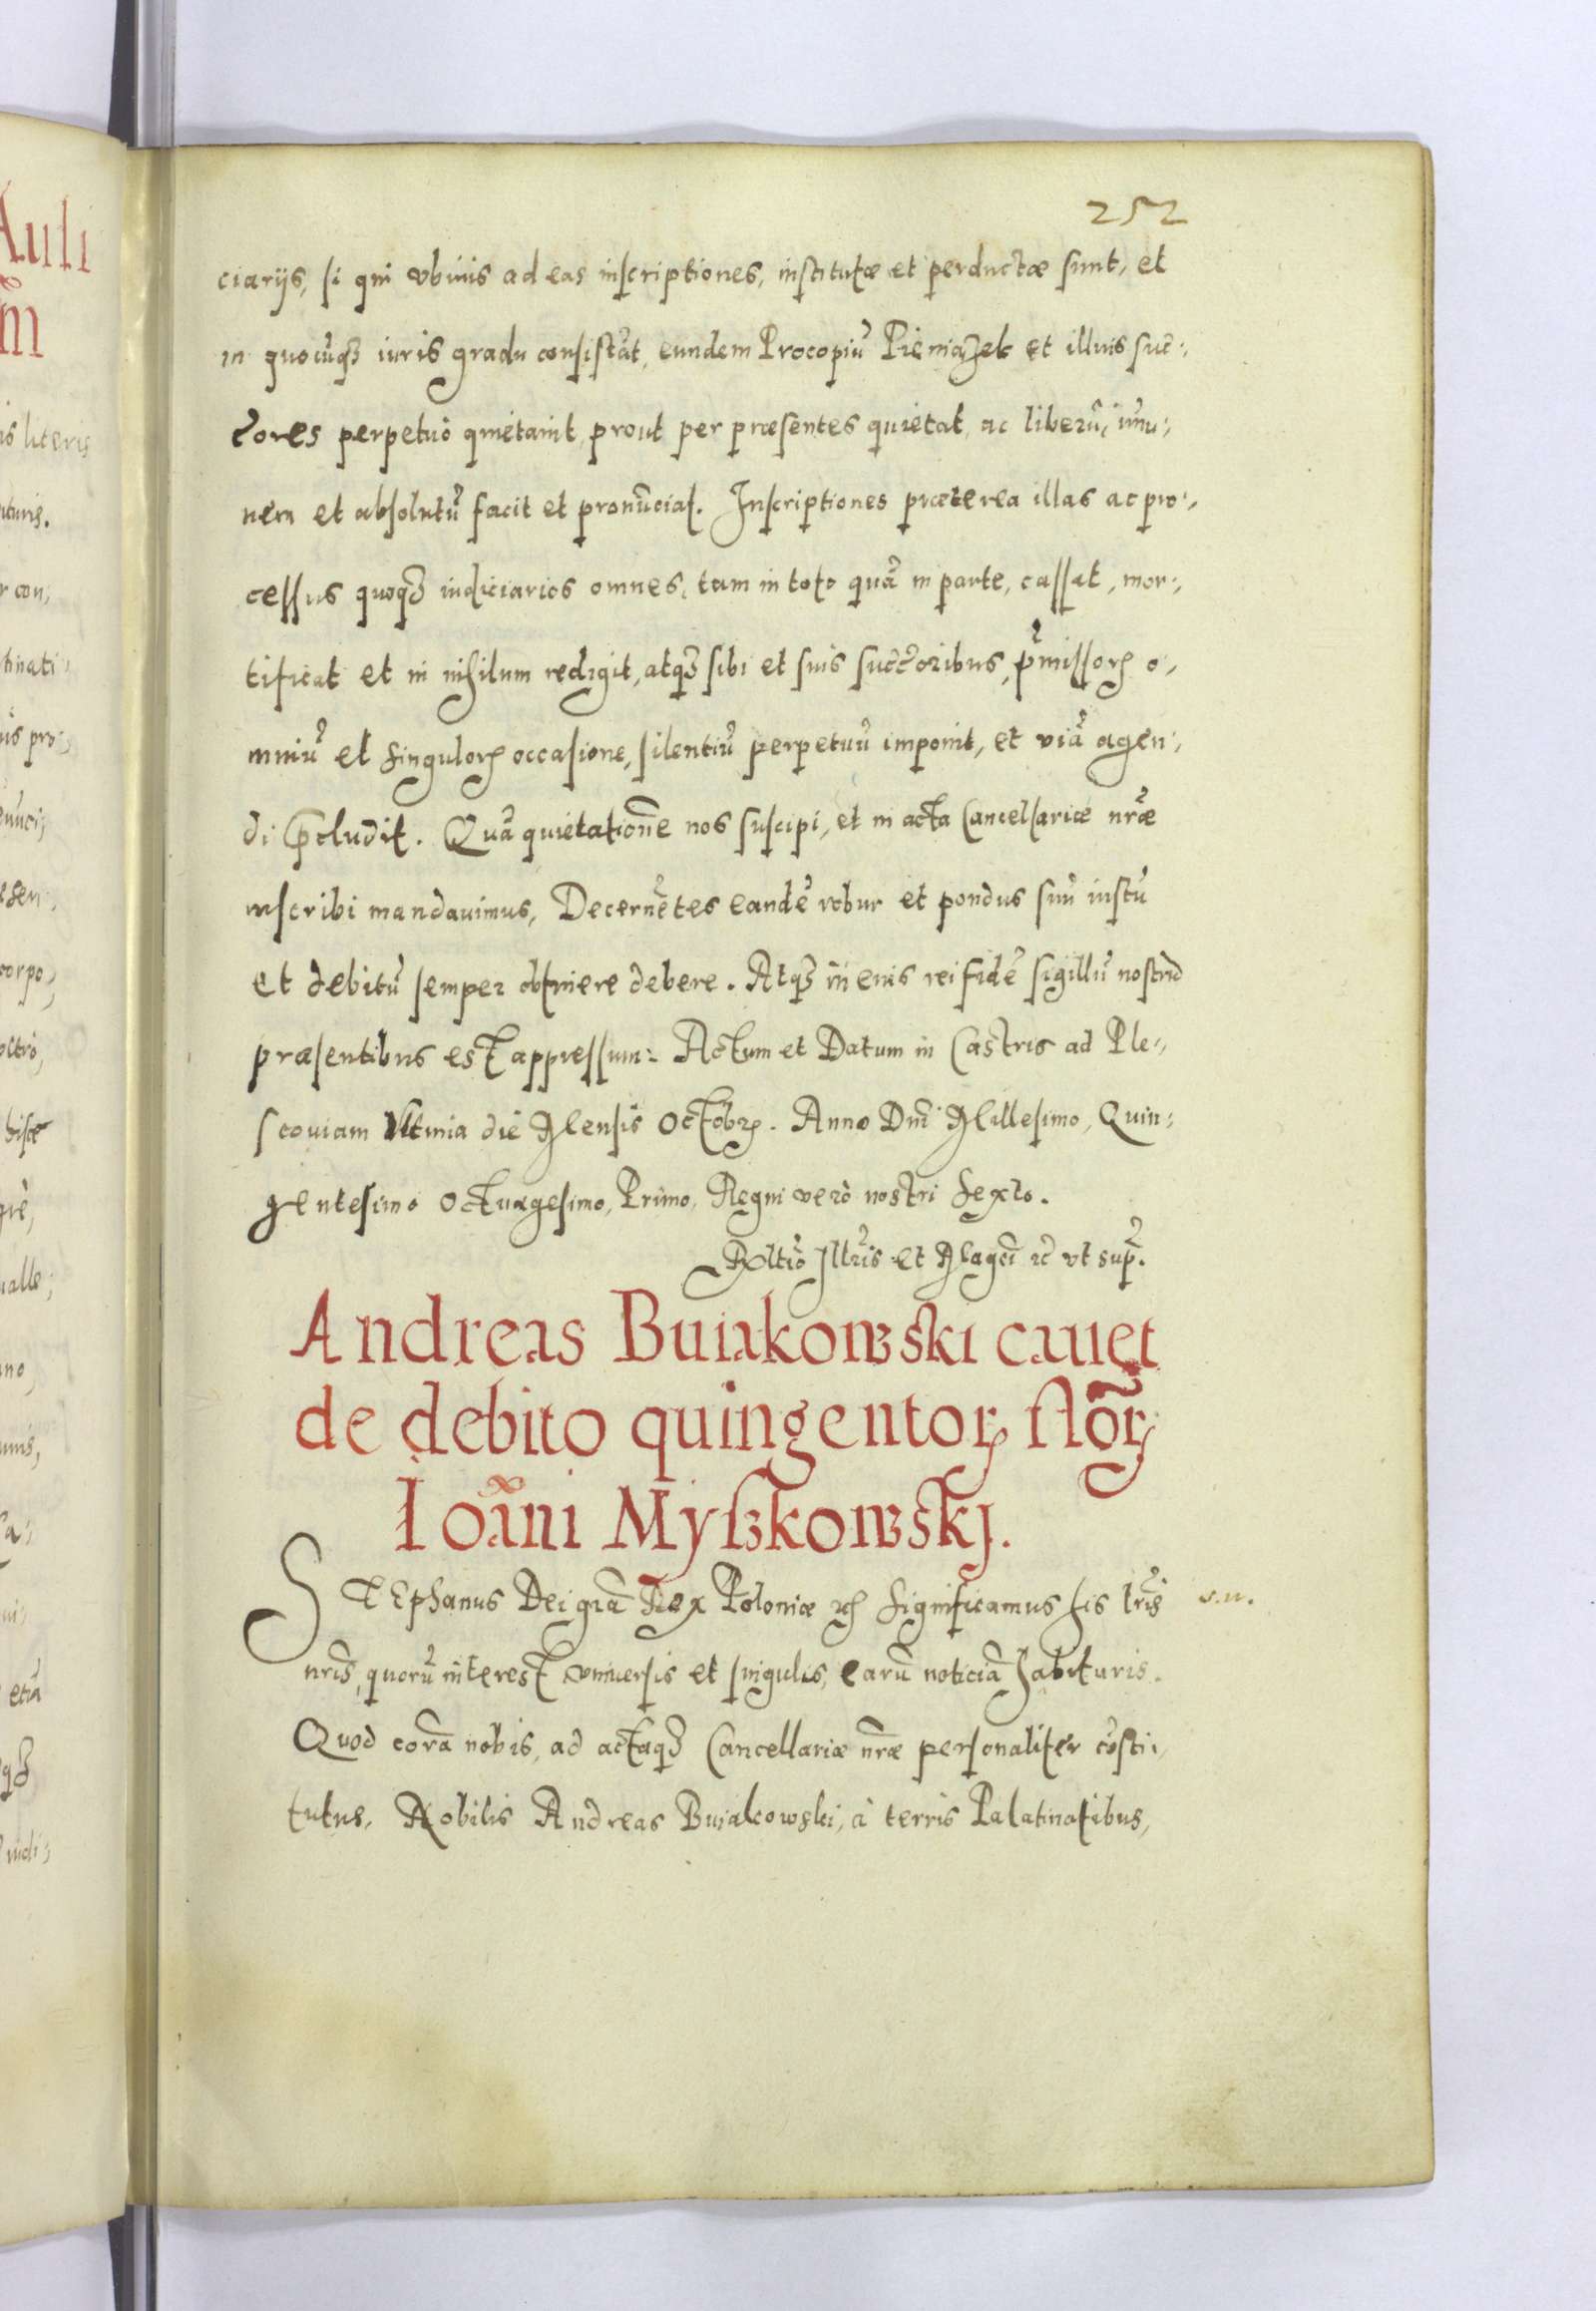 252
ciarijs, si qui vbiuis ad eas inscriptiones, institutæ et perductæ sunt, et
in quocūq3 iuris gradu consistāt, eundem Procopiū Pieniążek et illius suc:,
cores perpetuò quietauit, prout per præsentes quietat, ac liberū, imu:,
nem et absolutū facit et pronūciat. Inscriptiones præterea illas ac pro:,
cessus quoq3 iudiciarios omnes, tam in toto quā in parte, cassat, mor:,
tificat et in nihilum redigit, atq3 sibi et suis succoribus, p̄missorꝝ o:,
mniū et singulorꝝ occasione, silentiū perpetuū imponit, et viā agen:,
di p̄cludit. Quā quietationē nos suscipi, et in acta Cancellariæ nr̄æ
inscribi mandauimus, Decernētes eandē robur et pondus suū iustū
et debitū semper obtinere debere. Atq3 in eius rei fidē sigillū nostrū
præsentibus est appressum: Actum et Datum in Castris ad Ple:,
scouiam Vltima die Mensis Octobrꝫ. Anno Dn̄i Millesimo, Quin:,
gentesimo Octuagesimo, Primo, Regni verò nostri Sexto.
Rltiō Illris et Magci ꝛc vt sup̄.
Andreas Buiakowski cauet
de debito quingentorꝝ flōrꝝ
Ioāni Myszkowskj.
STEphanus Dei grā Rex Poloniæ ꝛc Significamus his lrīs
v.n.
nrīs, quorū interest vniuersis et singulis, earū noticiā habituris.
Quod corā nobis, ad actaq3 Cancellariæ nr̄æ personaliter cōsti:,
tutus, Nobilis Andreas Buiakowski, à terris Palatinatibus,